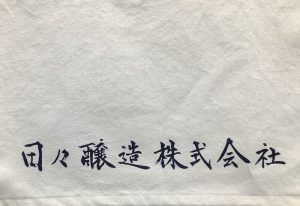 田々醸造株式会社